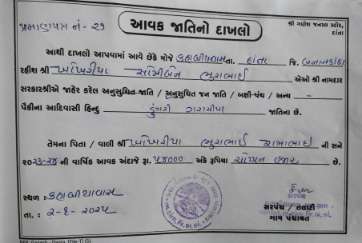 પ્રમાણપત્ર નં - ૨૧
આવક જાતિનો દાખલો
શ્રી ગણેશ જનરલ સ્ટોર,
દાંતા
આથી દાખલો આપવામાં આવે છેકે મોજે કણબીયાવાસ તા. દાંતા જિ. બનાસકાંઠા
રહીશ શ્રી સોમીબેન ભુરાભાઈ એઓ શ્રી નામદાર
સરકારશ્રીએ જાહેર કરેલ અનુસુચિત-જાતિ / અનુસુચિત જન જાતિ / બક્ષી-પંચ / અન્ય -
પૈકીના આદિવાસી હિન્દુ ડુંગરી ગરાસીયા જાતિના છે.
તેમના પિતા / વાલી શ્રી ભુરાભાઈ રામાભાઈ ની સને
૨૦૨૩-૨૪ ની વાર્ષિક આવક અંદાજે રૂા. ૫૪૦૦૦ અંકે રૂપિયા ચોપ્પન હજાર છે.
સ્થળ : કણબીયાવાસ
તા. : ૨-૧-૨૦૨૫
સરપંચ / તલાટી
ગામ પંચાયત